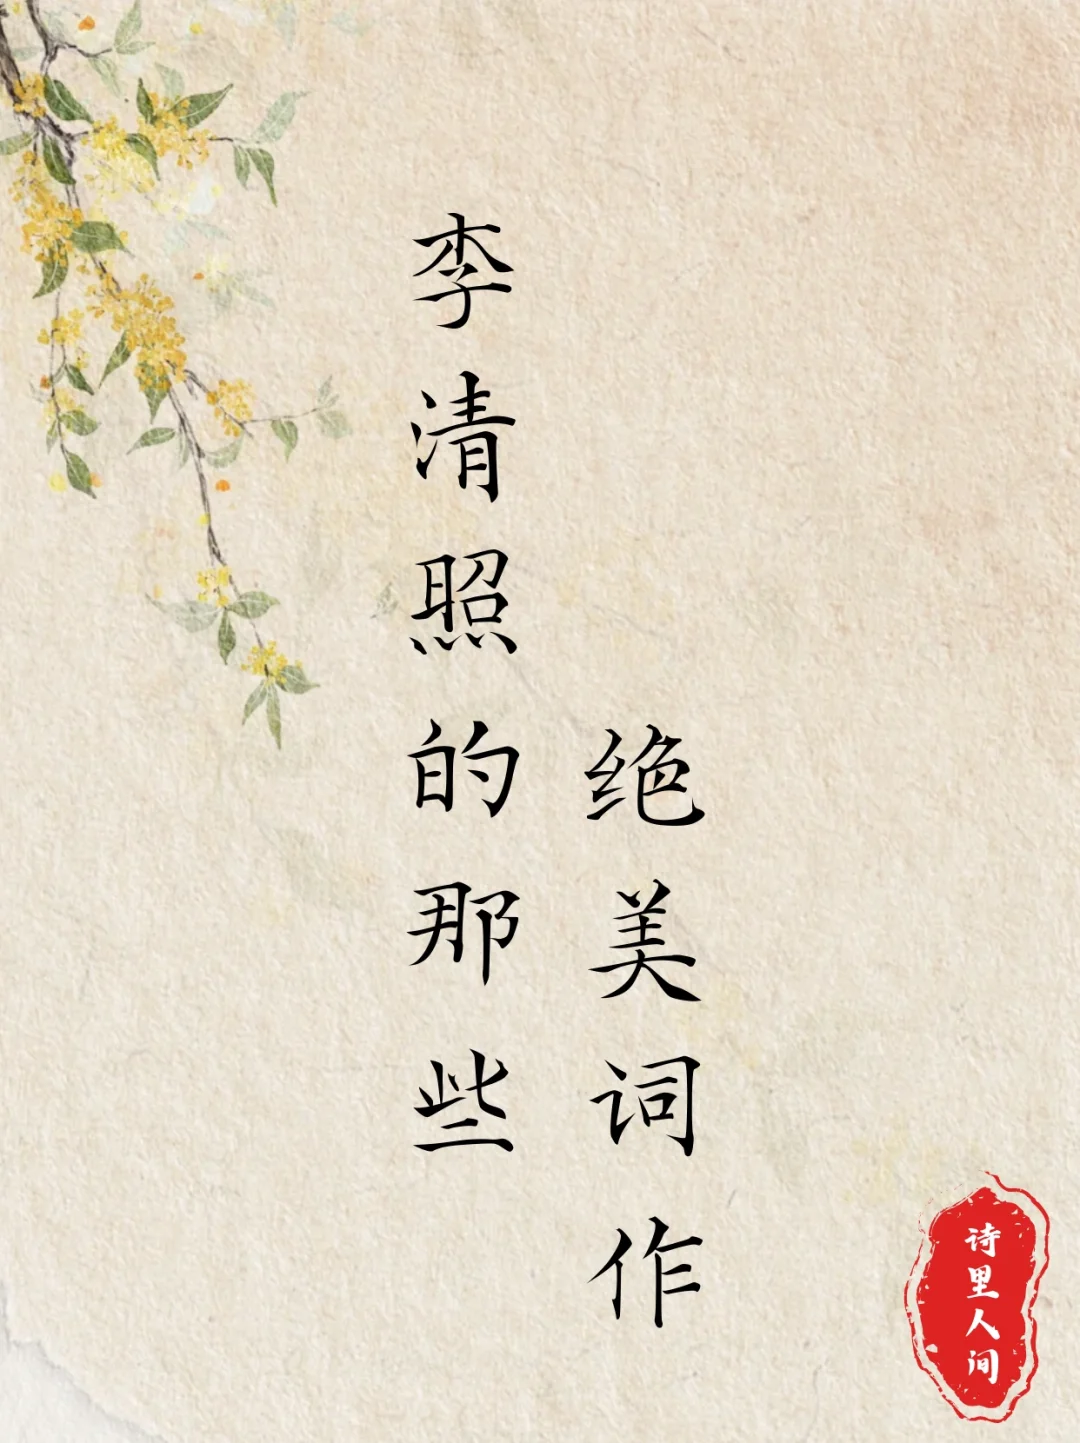 李清照的那些
绝美词作
诗里人间